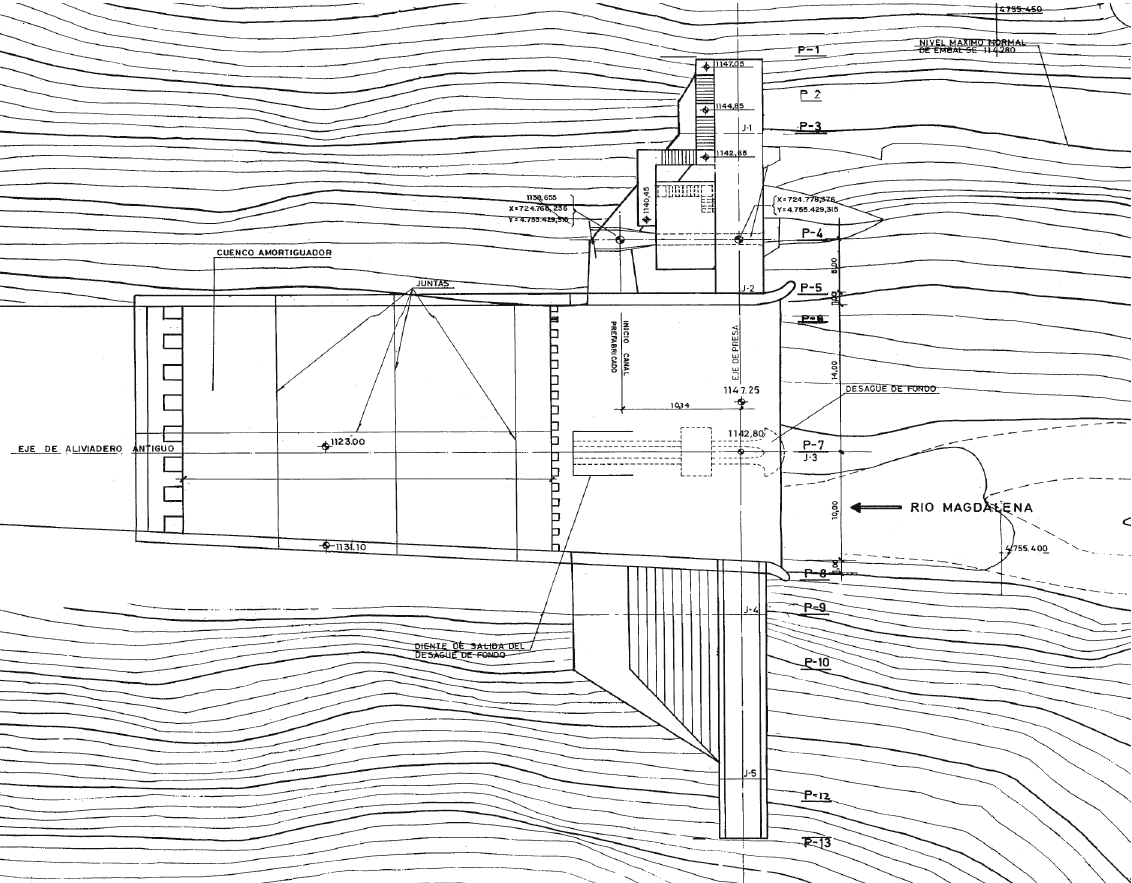 4.755.450
P-1
NIVEL MAXIMO NORMAL
DE EMBALSE 1142,80
1147,05
P 2
1144,85
J-1
P-3
1142,85
1138,655
X=724.768,236
Y=4.755.429,315
1140,45
X=724.778,376
Y=4.755.429,315
P-4
CUENCO AMORTIGUADOR
8,00
JUNTAS
J-2
P-5
1,00
P-6
INICIO CANAL
PREFABRICADO
EJE DE PRESA
14,00
1147.25
DESAGUE DE FONDO
10,14
1142,80
EJE DE ALIVIADERO ANTIGUO
1123.00
P-7
J-3
10,00
RIO MAGDALENA
1131.10
4.755.400
1,00
P-8
J-4
P-9
DIENTE DE SALIDA DEL
DESAGUE DE FONDO
P-10
J-5
P-12
P-13